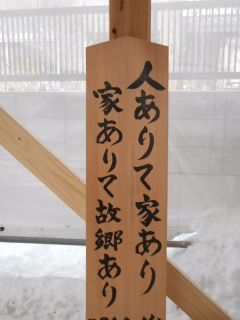 人ありて家あり
家ありて故郷あり